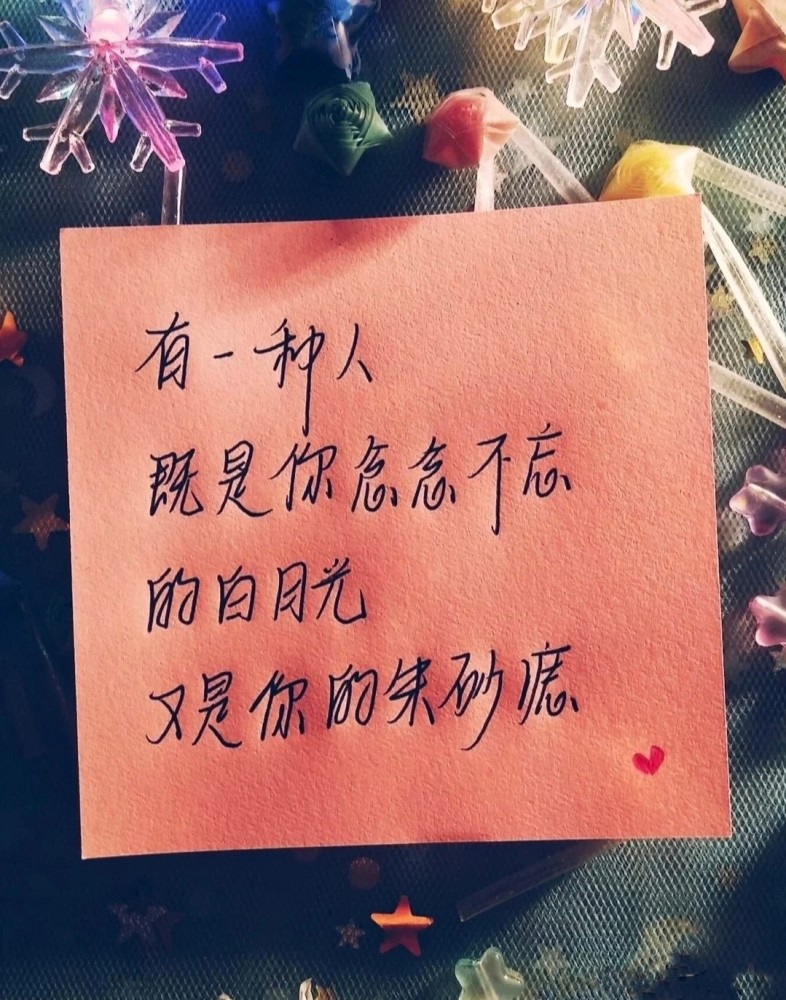 有一种人
既是你念念不忘
的白月光
又是你的朱砂痣